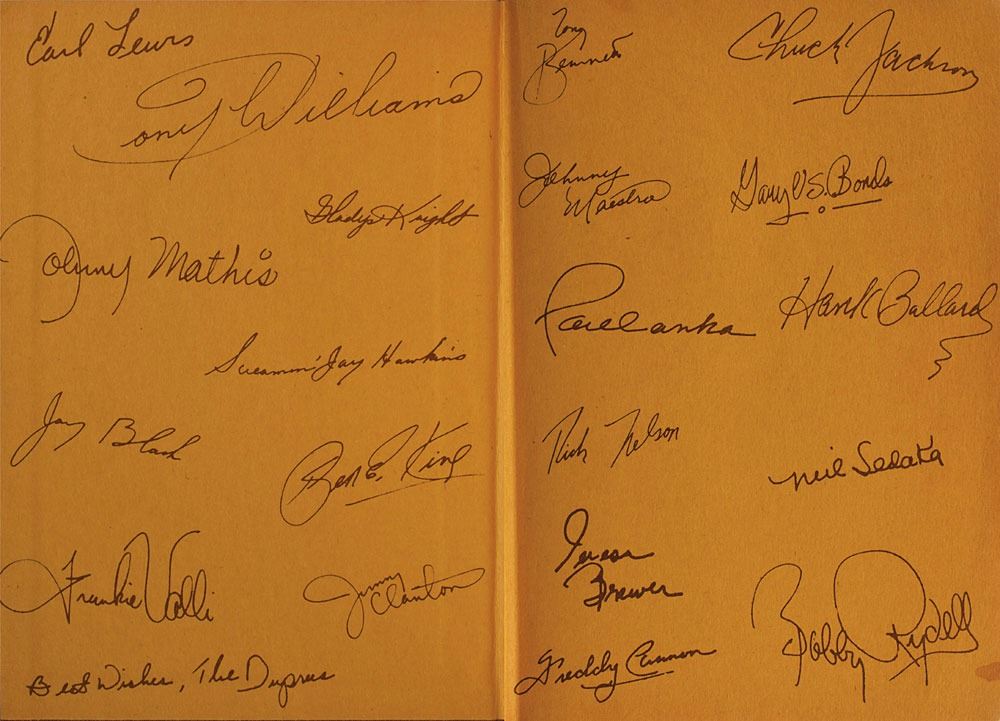 Earl Lewis
Tony Williams
Gladys Knight
Johnny Mathis
Screamin' Jay Hawkins
Jay Black
Ben E. King
Frankie Valli
Jimmy Clanton
Best Wishes, The Duprees
Tony
Bennett
Chuck Jackson
Johnny
Maestro
Gary U.S. Bonds
Paul Anka
Hank Ballard
Rick Nelson
Neil Sedaka
Teresa
Brewer
Freddy Cannon
Bobby Rydell